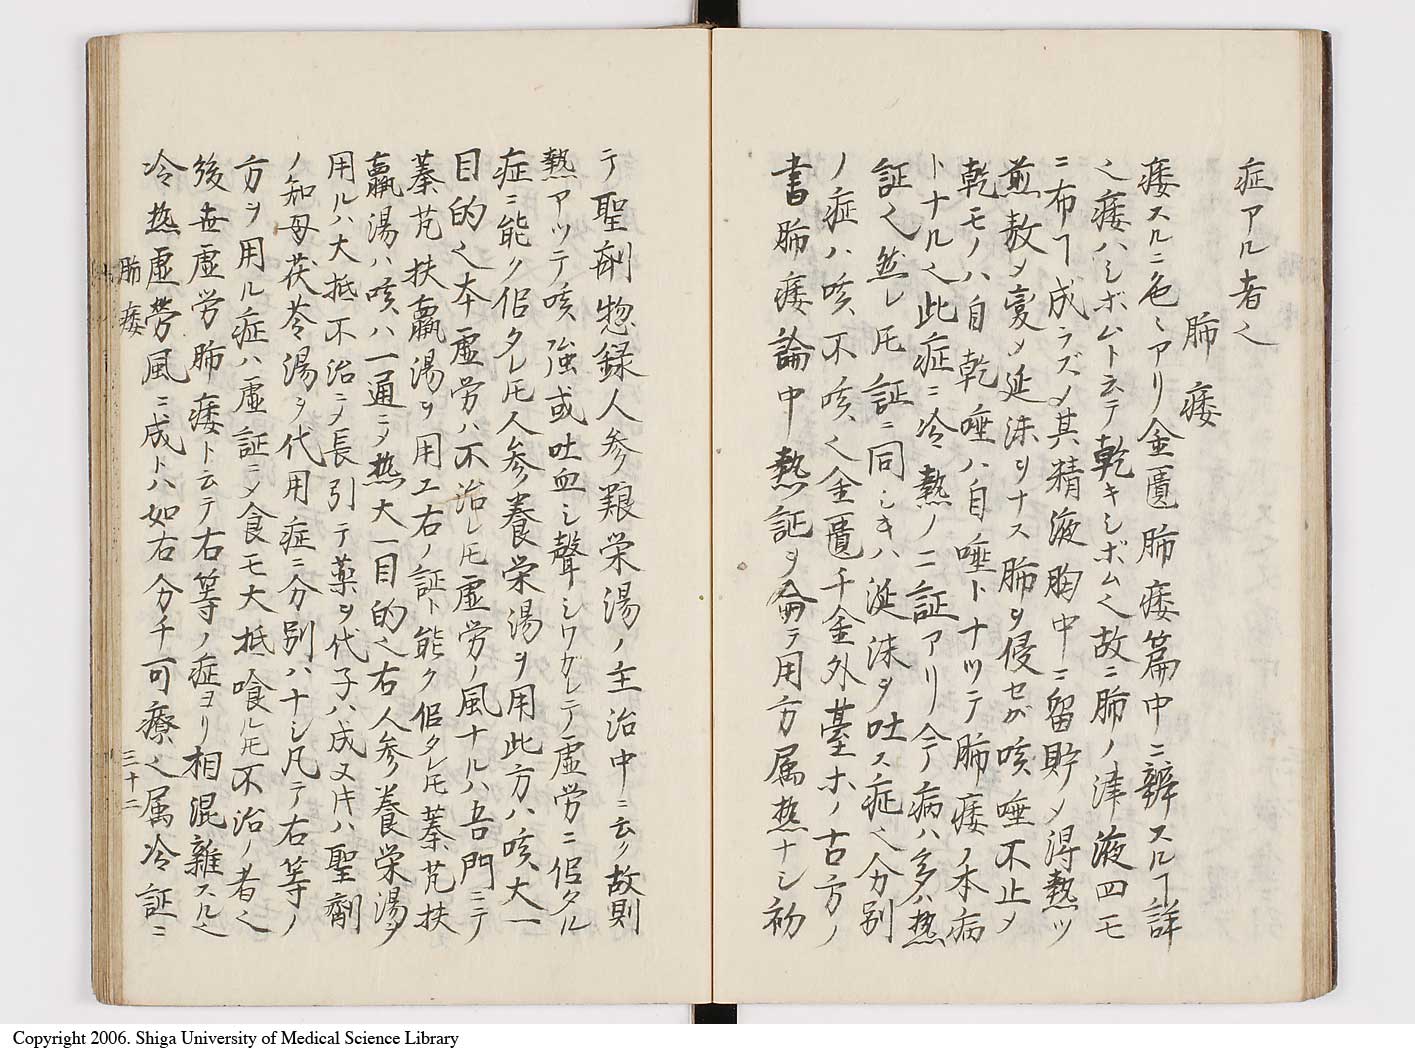 症アル者〱
肺痿
痿スルニ色〻アリ金匱肺痿篇中ニ辨スルヿ詳
〱痿ハシボムト云テ乾キシボム〱故ニ肺ノ津液四モ
ニ布ヿ成ラズ〆其精液胸中ニ留貯〆得熱ツ
煎敖〆変〆延沫ヲナス肺ヲ侵セガ咳唾不止〆
乾モノハ自乾唾ハ自唾トナツテ肺痿ノ本病
トナル〱此症ニ冷熱ノ二証アリ今病ハ多ハ熱
証〱然レ𪜈証ニ同シキハ涎沫ヲ吐ス症〱分別
ノ症ハ咳不咳〱金匱千金外臺ホノ古方ノ
書肺痿論中熱証ヲ侖テ用方属熱ナシ初
テ聖剤惣録人参艱栄湯ノ主治中ニ云ノ故則
熱アツテ咳強或吐血シ聲シワガレテ虚労ニ佀タル
症ニ能ク佀タレ𪜈人参養栄湯ヲ用此方ハ咳大一
目的〱夲虚労ハ不治レ𪜈虚労ノ風ナルハ吾門ニテ
蓁芃扶羸湯ヲ用エ右ノ証ト能ク佀タレ𪜈蓁芃扶
羸湯ハ咳ハ一通ニテ熱大一目的〱右人参養栄湯ヲ
用ルハ大抵不治ニ〆長引テ薬ヲ代子ハ成ヌ𪜈ハ聖劑
ノ知母茯苓湯ヲ代用症ニ分別ハナシ凡テ右等ノ
方ヲ用ル症ハ虚証ニ〆食モ大抵喰ル𪜈不治ノ者〱
後世虚労肺痿ト云テ右等ノ症ヨリ相混雜スル〱
冷熱虚労風ニ成トハ如右分チ可療〱属冷証ニ
肺痿
三十二
Copyright 2006. Shiga University of Medical Science Library